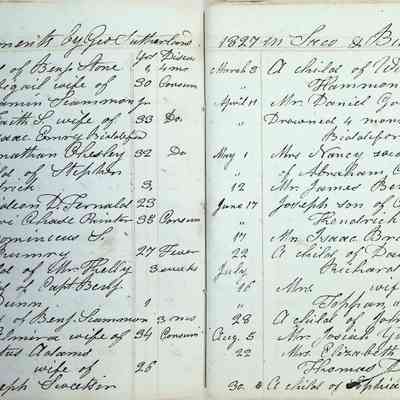 ments by Geo Sutherland
Yrs Disea
d of Benjn Stone 4 mo
bigail wife of 30 Consum
amin Scammon jr
Faith S. wife of 33 Do
saac Emry Biddeford
nathan Chesley 32 Do
ild of Stephen
drick 3,
ideon D. Fernald 23
Chase Painter 38 Consum
ominicus S.
27 Fever
ld of Mr 3 weeks
of Capt Benj
Dunn 1
d of Benj Scammon 3 ms
lmira wife of 34 Consum
tus Adams
wife of 26
seph
1827 in Saco & Bi
March 3 A child of
Hammon
April 11 Mr. Daniel
" Drowned 4 mon
Biddefor
May 1 Mrs Nancy
" of Abraham
12 Mr. James Be
June 17 Joseph son of
" Kendrick
17 Mr. Isaac Br
22 A child of Da
July Richard
16 Mrs. wif
" Toppan
28 A child of John
Aug. 5 Mr. Josiah
22 Mrs. Elizabeth
Thomas
30 A child of